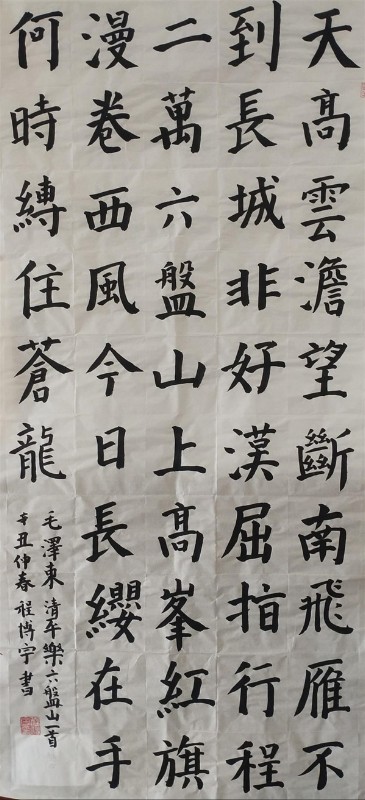 天高雲澹望斷南飛雁不
到長城非好漢屈指行程
二萬六盤山上高峯紅旗
漫卷西風今日長纓在手
何時縛住蒼龍
毛澤東清平樂六盤山一首
辛丑仲春程博宇書